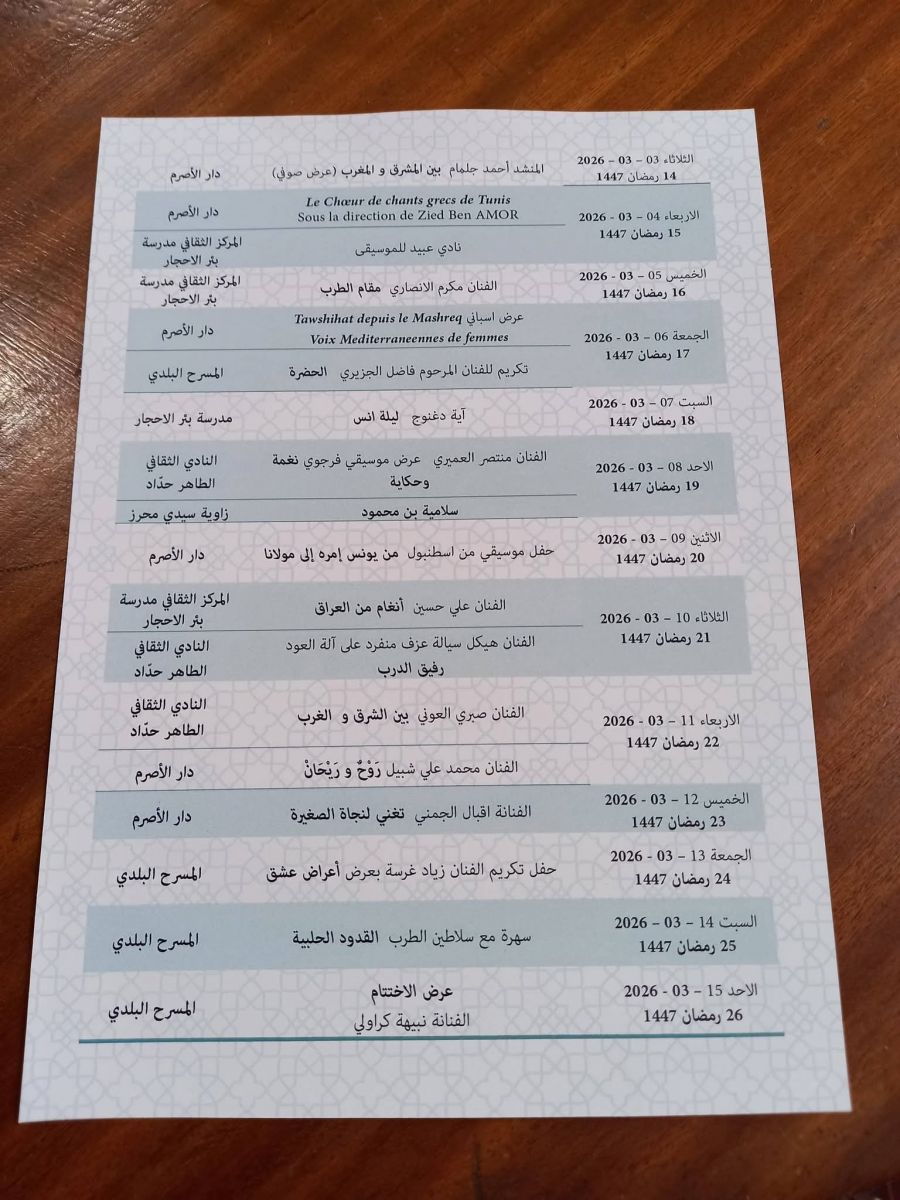 الثلاثاء 03 – 03 – 2026
14 رمضان 1447
المنشد أحمد جلمام بين المشرق و المغرب (عرض صوفي)
دار الأصرم
الاربعاء 04 – 03 - 2026
15 رمضان 1447
Le Chœur de chants grecs de Tunis
Sous la direction de Zied Ben AMOR
دار الأصرم
نادي عبيد للموسيقى
المركز الثقافي مدرسة
بئر الاحجار
الخميس 05 – 03 - 2026
16 رمضان 1447
الفنان مكرم الانصاري مقام الطرب
المركز الثقافي مدرسة
بئر الاحجار
الجمعة 06 – 03 - 2026
17 رمضان 1447
عرض اسباني Tawshihat depuis le Mashreq
Voix Mediterraneennes de femmes
دار الأصرم
تكريم للفنان المرحوم فاضل الجزيري الحضرة
المسرح البلدي
السبت 07 – 03 - 2026
18 رمضان 1447
آية دغنوج ليلة انس
مدرسة بئر الاحجار
الاحد 08 – 03 - 2026
19 رمضان 1447
الفنان منتصر العميري عرض موسيقي فرجوي نغمة
وحكاية
النادي الثقافي
الطاهر حدّاد
سلامية بن محمود
زاوية سيدي محرز
الاثنين 09 – 03 - 2026
20 رمضان 1447
حفل موسيقي من اسطنبول من يونس إمره إلى مولانا
دار الأصرم
الثلاثاء 10 – 03 - 2026
21 رمضان 1447
الفنان علي حسين أنغام من العراق
المركز الثقافي مدرسة
بئر الاحجار
الفنان هيكل سيالة عزف منفرد على آلة العود
رفيق الدرب
النادي الثقافي
الطاهر حدّاد
الاربعاء 11 – 03 - 2026
22 رمضان 1447
الفنان صبري العوني بين الشرق و الغرب
النادي الثقافي
الطاهر حدّاد
الفنان محمد علي شبيل رَوْحٌ و رَيْحَانْ
دار الأصرم
الخميس 12 – 03 - 2026
23 رمضان 1447
الفنانة اقبال الجمني تغني لنجاة الصغيرة
دار الأصرم
الجمعة 13 – 03 - 2026
24 رمضان 1447
حفل تكريم الفنان زياد غرسة بعرض أعراض عشق
المسرح البلدي
السبت 14 – 03 – 2026
25 رمضان 1447
سهرة مع سلاطين الطرب القدود الحلبية
المسرح البلدي
الاحد 15 – 03 - 2026
26 رمضان 1447
عرض الاختتام
الفنانة نبيهة كراولي
المسرح البلدي